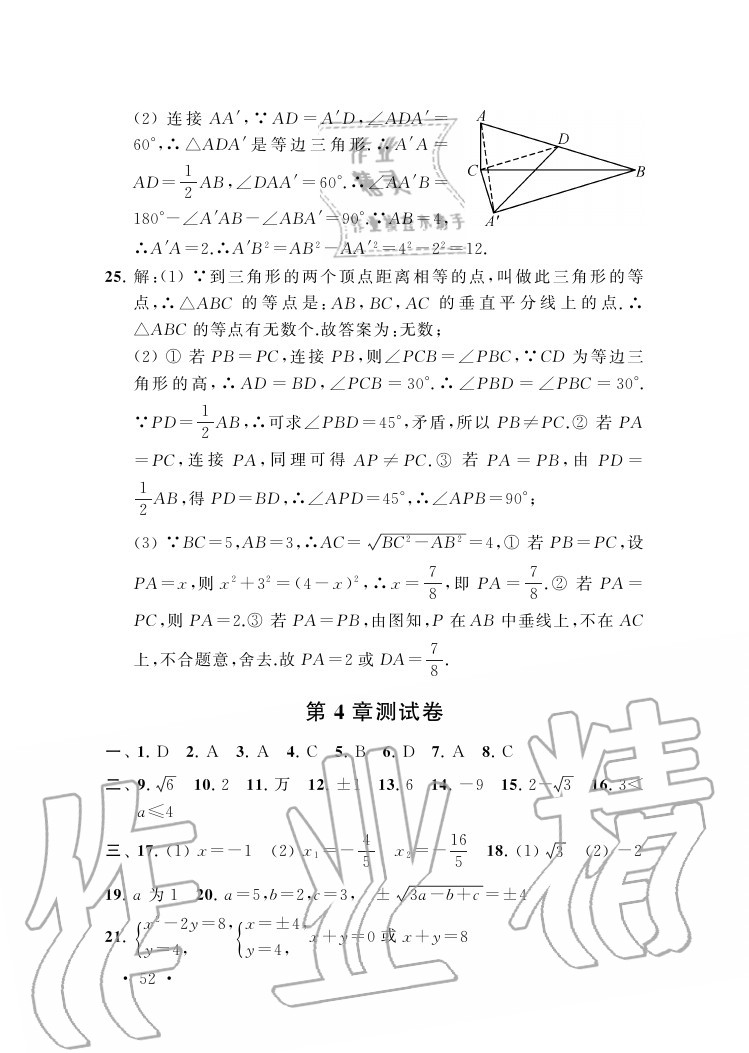 (2) 连接 AA′,∵AD=A′D,∠ADA′=
60°,∴△ADA′是等边三角形.∴A′A=
AD=1/2AB,∠DAA′=60°.∴∠AA′B=
180°-∠A′AB-∠ABA′=90°.∵AB=4,
∴A′A=2.∴A′B²=AB²-AA′²=4²-2²=12.
A
D
C
B
A′
25. 解:(1) ∵到三角形的两个顶点距离相等的点,叫做此三角形的等
点,∴△ABC 的等点是:AB,BC,AC 的垂直平分线上的点.∴
△ABC 的等点有无数个.故答案为:无数;
(2) ① 若 PB=PC,连接 PB,则∠PCB=∠PBC,∵CD 为等边三
角形的高,∴AD=BD,∠PCB=30°.∴∠PBD=∠PBC=30°.
∵PD=1/2AB,∴可求∠PBD=45°,矛盾,所以 PB≠PC.② 若 PA
=PC,连接 PA,同理可得 AP≠PC.③ 若 PA=PB,由 PD=
1/2AB,得 PD=BD,∴∠APD=45°,∴∠APB=90°;
(3) ∵BC=5,AB=3,∴AC=√(BC²-AB²)=4,① 若 PB=PC,设
PA=x,则 x²+3²=(4-x)²,∴x=7/8,即 PA=7/8.② 若 PA=
PC,则 PA=2.③ 若 PA=PB,由图知,P 在 AB 中垂线上,不在 AC
上,不合题意,舍去.故 PA=2 或 DA=7/8.
第 4 章测试卷
一、1. D 2. A 3. A 4. C 5. B 6. D 7. A 8. C
二、9. √6 10. 2 11. 万 12. ±1 13. 6 14. -9 15. 2-√3 16. 3<
a≤4
三、17. (1) x=-1 (2) x₁=-4/5 x₂=-16/5 18. (1) √3 (2) -2
19. a 为 1 20. a=5,b=2,c=3, ±√(3a-b+c)=±4
21. {x²-2y=8, y=4, {x=±4 y=4, x+y=0 或 x+y=8
• 52 •
作业精灵
作业精灵
作业做五不助手